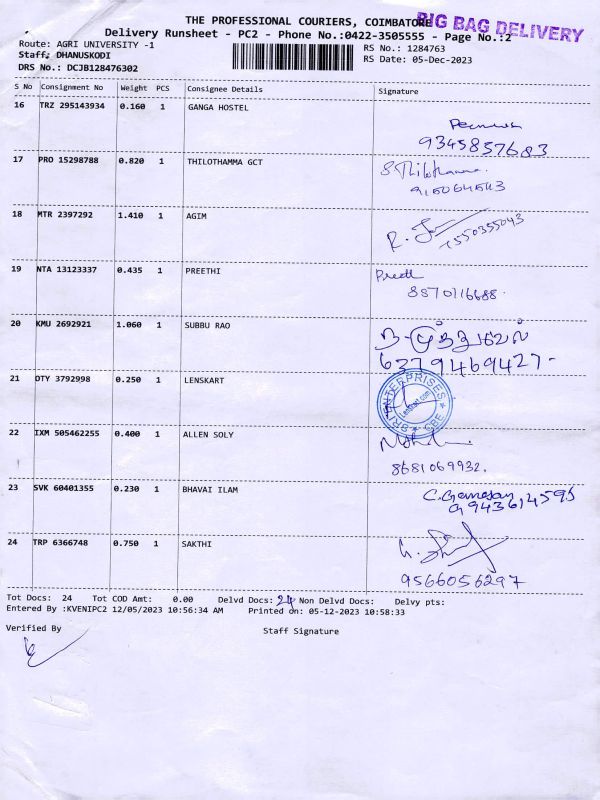 THE PROFESSIONAL COURIERS, COIMBATORE
BIG BAG DELIVERY
Delivery Runsheet - PC2 - Phone No.:0422-3505555 - Page No.:2
Route: AGRI UNIVERSITY -1
RS No.: 1284763
Staff: DHANUSKODI
RS Date: 05-Dec-2023
DRS No.: DCJB128476302
S No Consignment No Weight PCS Consignee Details Signature
16 TRZ 295143934 0.160 1 GANGA HOSTEL
9345857683
17 PRO 15298788 0.820 1 THILOTHAMMA GCT
S Thilothamma
18 MTR 2397292 1.410 1 AGIM
7550355043
19 NTA 13123337 0.435 1 PREETHI
Preethi
8870116688.
20 KMU 2692921 1.060 1 SUBBU RAO
ந-முத்துவேல்
6379469427-
21 DTY 3792998 0.250 1 LENSKART
SRI ENTERPRISES
Lenskart.com
CBE
22 IXM 505462255 0.400 1 ALLEN SOLY
8681069932.
23 SVK 60401355 0.230 1 BHAVAI ILAM
C. Ganesan
9943614595
24 TRP 6366748 0.750 1 SAKTHI
9566056297
Tot Docs: 24 Tot COD Amt: 0.00 Delvd Docs: 24 Non Delvd Docs: Delvy pts:
Entered By :KVENIPC2 12/05/2023 10:56:34 AM Printed on: 05-12-2023 10:58:33
Verified By Staff Signature